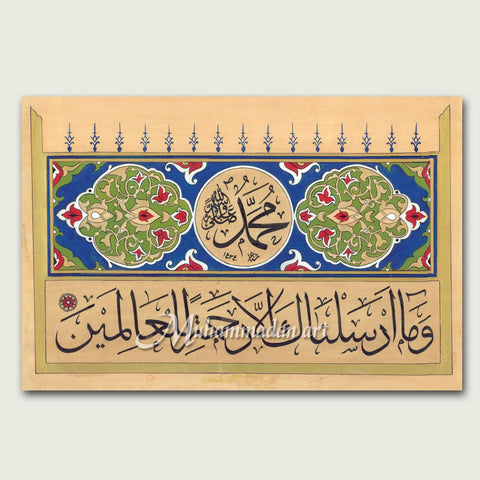 محمد
صلى الله عليه وسلم
وَمَا أَرْسَلْنَاكَ إِلَّا رَحْمَةً لِلْعَالَمِينَ
Muhammadan art